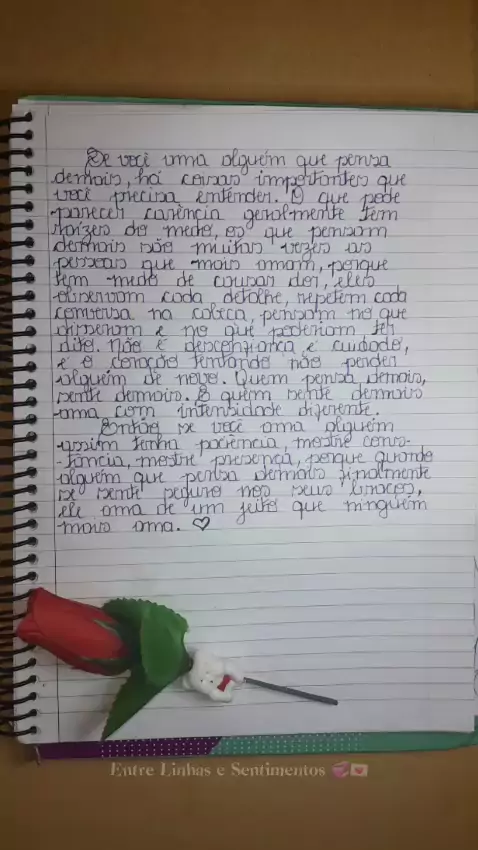 Se você ama alguém que pensa
demais, há coisas importantes que
você precisa entender. O que pode
parecer carência geralmente tem
raízes do medo, os que pensam
demais são muitas vezes as
pessoas que mais amam, porque
tem medo de causar dor, eles
observam cada detalhe, repetem cada
conversa na cabeça, pensam no que
disseram e no que poderiam ter
dito. Não é desconfiança é cuidado,
e é o coração tentando não perder
alguém de novo. Quem pensa demais,
sente demais. E quem sente demais
ama com intensidade diferente.
Então, se você ama alguém
assim tenha paciência, mostre cons-
-tância, mostre presença, porque quando
alguém que pensa demais finalmente
se sente seguro nos seus braços,
ele ama de um jeito que ninguém
mais ama. ♡
Entre Linhas e Sentimentos 💞💌